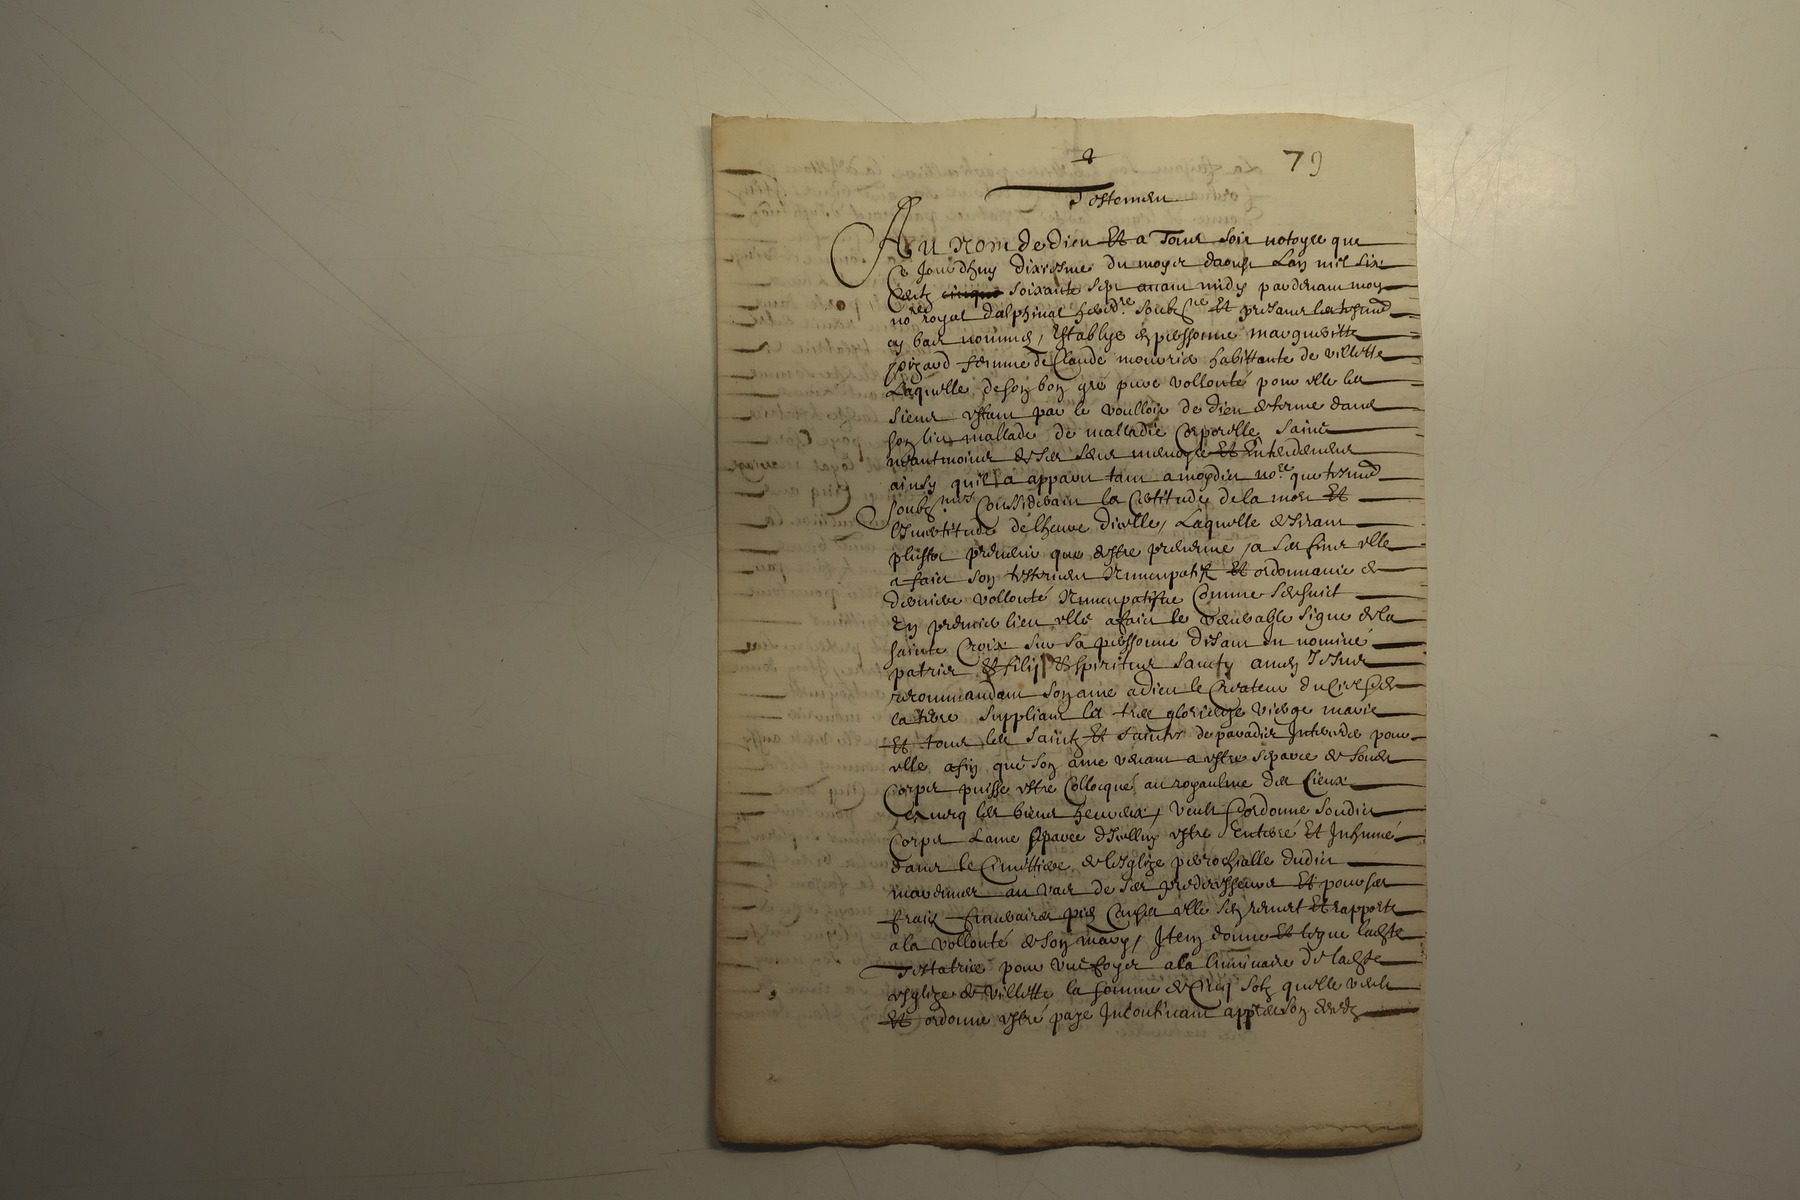 79
Testemen
Au nom de dieu Et a Tous soit notoyre que
Ce Jourdhuy dixiesme du moys daoust Lan mil six
Centz soixante sept avant midy pardevant moy
no.re royal dalphinal hered.re soubz.né Et presans les tesmo
cy bas nommés, Establye en personne marguerite
femme de Claude habittante de villette
Laquelle de son bon gré pure vollonté pour elle les
siens estant par le voulloir de dieu detenue dans
son lict mallade de malladie Corporelle saine
neantmoins de ses sens memoyre Et Entendement
ainsy quil a apparu tant a moydict no.re que tesmo
soubz.nés Considerant la Certitude de la mort Et
lIncertitude de lheure dicelle, Laquelle desirant
plustot prevenir que destre prevenue, a ses fins elle
a faict son testemen Nuncupatif Et ordonnance de
derniere vollonté Nuncupatifve Comme sensuict
En premier lieu elle a faict le venerable signe de la
sainte Croix sur sa personne disant in nomine
patris et filij et spiritus sancty amen Jesus
recommandant son ame a dieu le Createur du Ciel et de
la terre suppliant la tres glorieuze vierge marie
Et tous les saintz Et saintes de paradis Interceder pour
elle afin que son ame venant a estre separee de sondit
Corps puisse estre Collocquée au royaulme des Cieux
avecq les biens heureux, veult Et ordonne sondict
Corps Lame separee dicelluy estre Enterré Et Inhumé
dans le Cimittiere de lesglize parrochialle dudict
au vas de ses predecesseurs Et pour ses
frais funeraires pies Causes elle sen remet Et rapporte
a la vollonté de son mary, Item donne Et legue ladite
Testatrice pour une foys a la luminaire de ladite
esglize de villette la somme de Cinq solz quelle veult
Et ordonne estre paye Incontinant appres son decedz